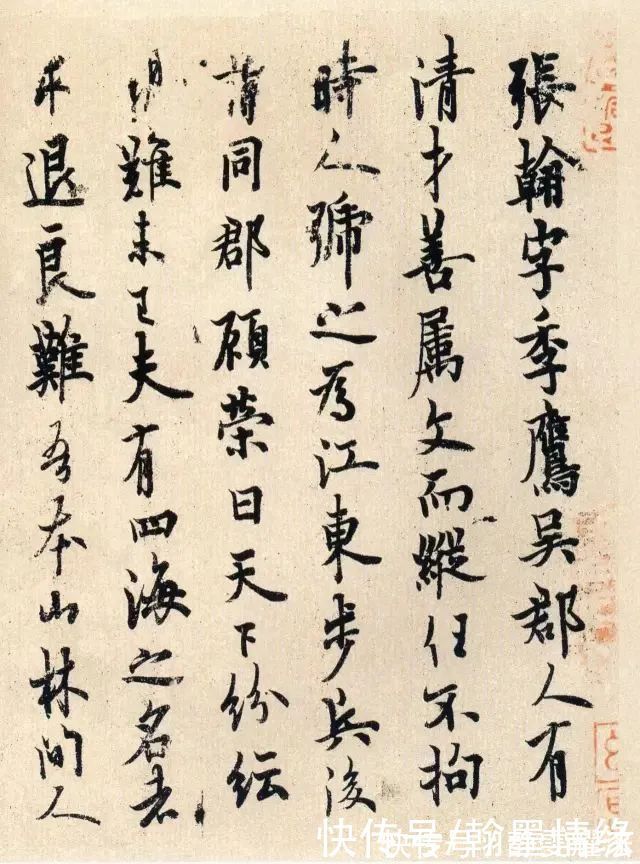 張翰字季鷹吳郡人有
清才善属文而縱任不拘
時人號之為江東步兵後
同郡顧榮曰天下紛紜
難未已夫有四海之名者
求退良難吾本山林間人
快传号/翰墨情缘